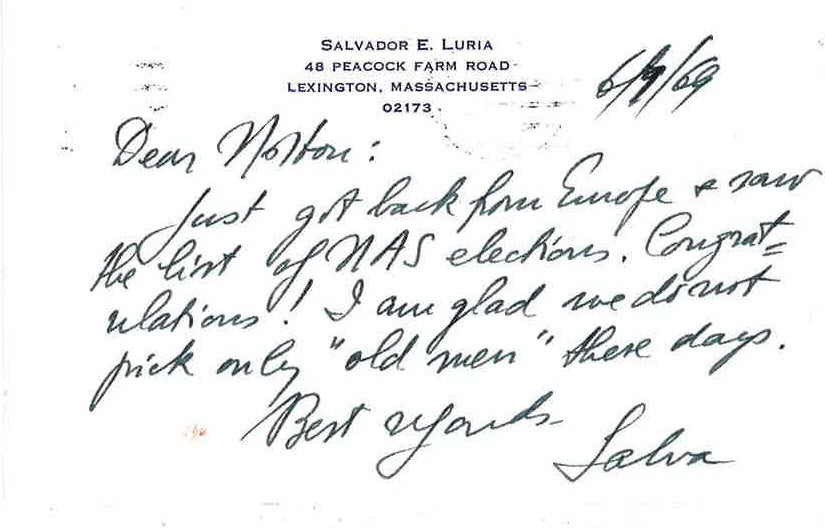 SALVADOR E. LURIA
48 PEACOCK FARM ROAD
LEXINGTON, MASSACHUSETTS
02173
6/9/69
Dear Norton:
Just got back from Europe & saw
the list of NAS elections. Congrat=
ulations! I am glad we do not
pick only "old men" these days.
Best regards
Salva